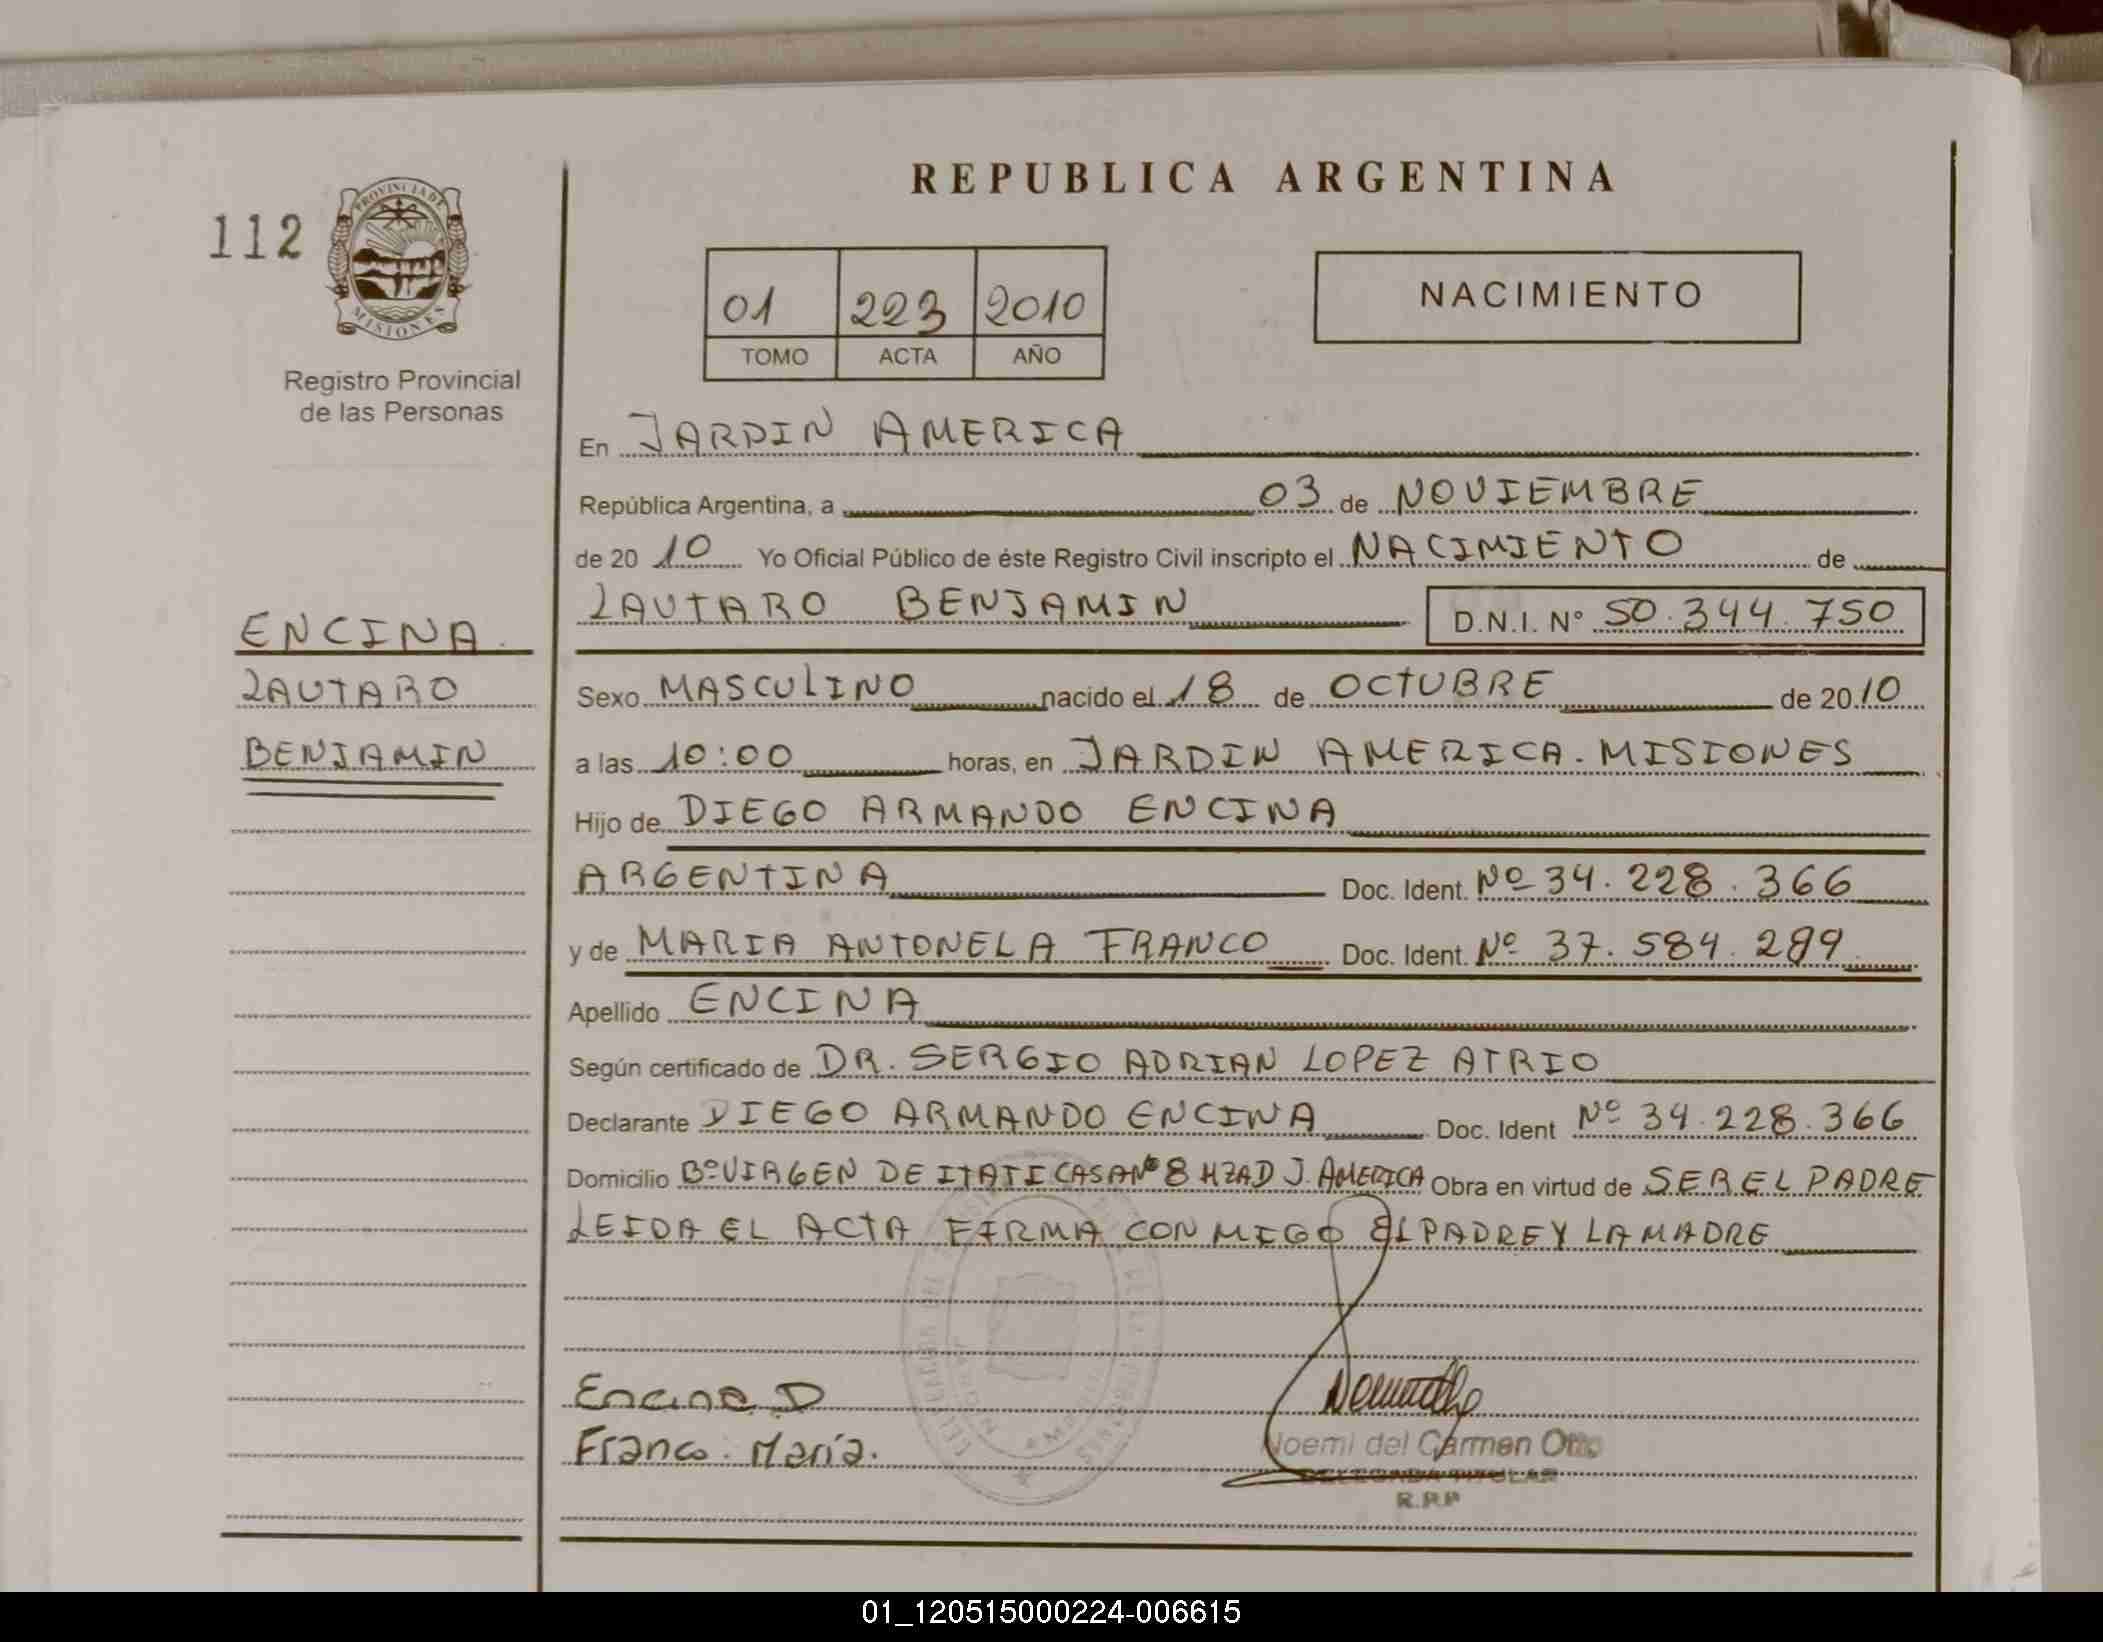 REPUBLICA ARGENTINA
112
PROVINCIA DE
MISIONES
Registro Provincial
de las Personas
01 223 2010
TOMO ACTA AÑO
NACIMIENTO
ENCINA
LAUTARO
BENJAMIN
En JARDIN AMERICA
República Argentina, a 03 de NOVIEMBRE
de 20 10 Yo Oficial Público de éste Registro Civil inscripto el NACIMIENTO de
LAUTARO BENJAMIN D.N.I. N° 50.344.750
Sexo MASCULINO nacido el 18 de OCTUBRE de 20 10
a las 10:00 horas, en JARDIN AMERICA. MISIONES
Hijo de DIEGO ARMANDO ENCINA
ARGENTINA Doc. Ident. Nº 34.228.366
y de MARIA ANTONELA FRANCO Doc. Ident. Nº 37.584.289
Apellido ENCINA
Según certificado de DR. SERGIO ADRIAN LOPEZ ATRIO
Declarante DIEGO ARMANDO ENCINA Doc. Ident Nº 34.228.366
Domicilio Bº VIRGEN DE ITATI CASA Nº 8 MZA D J. AMERICA Obra en virtud de SER EL PADRE
LEIDA EL ACTA FIRMA CONMIGO EL PADRE Y LA MADRE
Encina D
Franco María.
Noemi del Carmen Otto
DELEGADA TITULAR
R.P.P
01_120515000224-006615